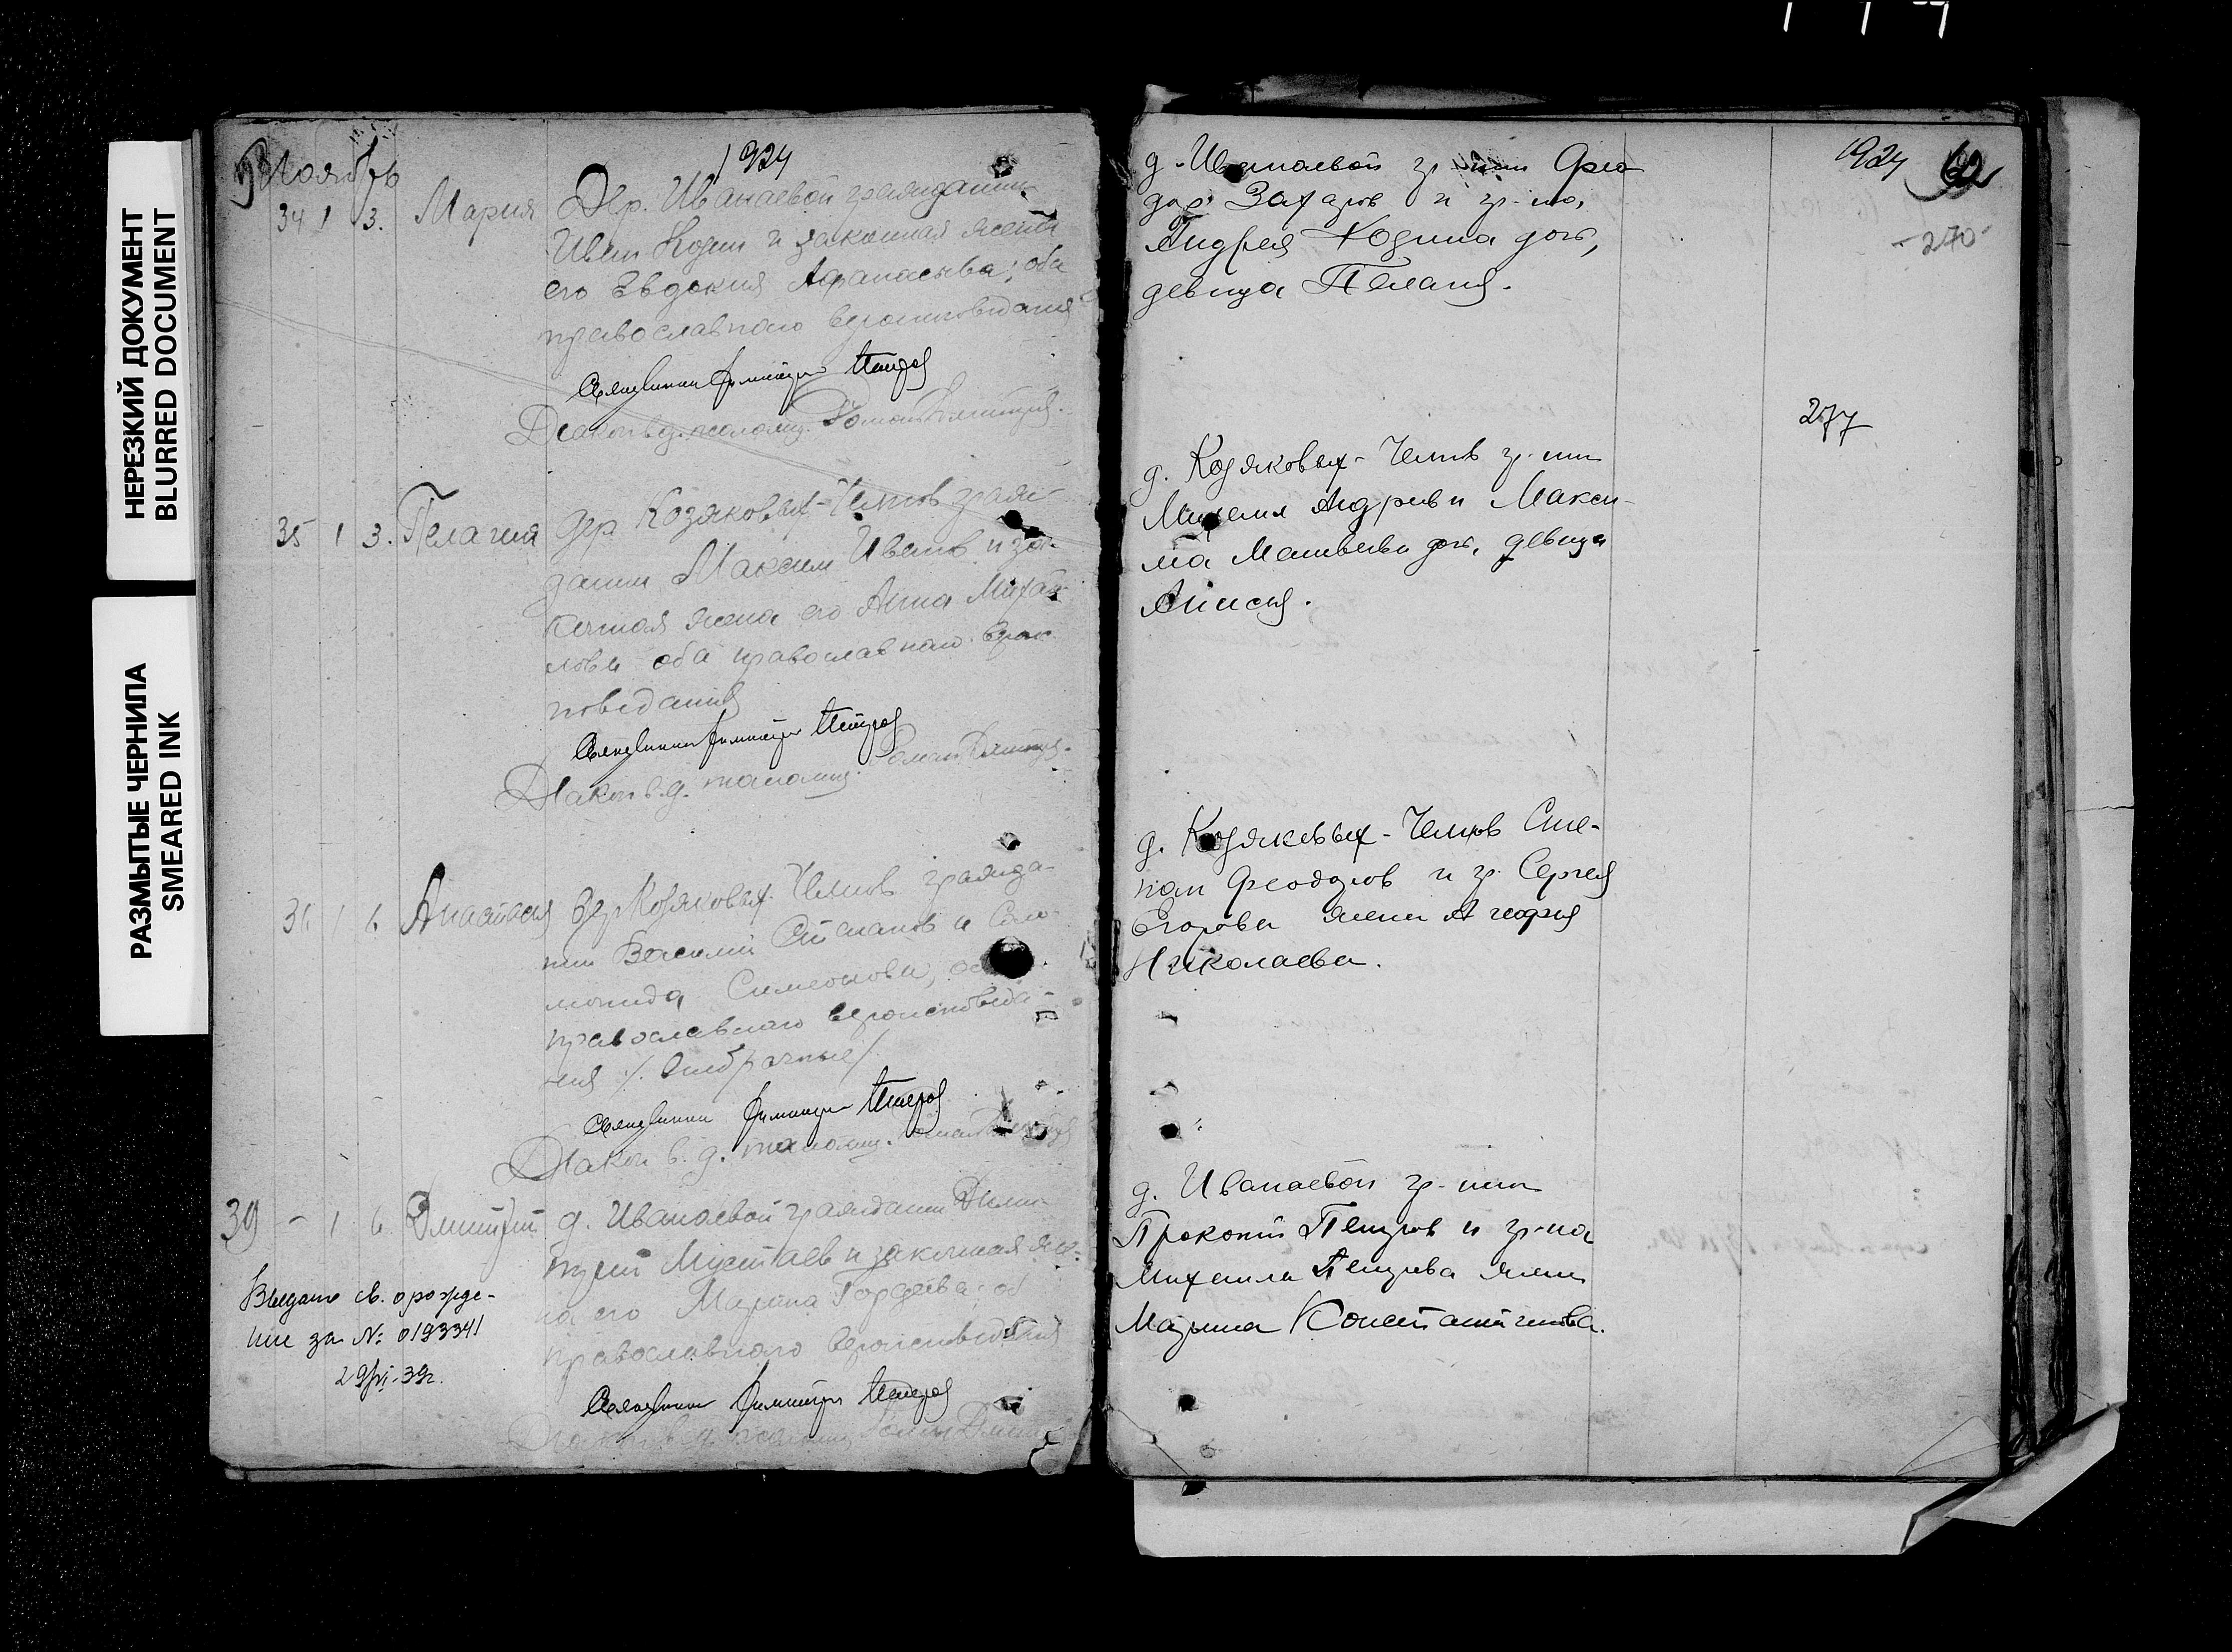 НЕРЕЗКИЙ ДОКУМЕНТ
BLURRED DOCUMENT
РАЗМЫТЫЕ ЧЕРНИЛА
SMEARED INK
Ноябрь
1924
34 1 3. Мария Дер. Иванаевой гражданин
Иван Козин и законная жена
его Евдокия Афанасьева; оба
православного вероисповедания
Священник Димитрий Петров
Диакон в д. псаломщ. Роман Дмитриев.
35 1 3. Пелагия дер Козяковых-Челнов граж-
данин Максим Иванов и за-
конная жена его Анна Михай-
лова оба православнаго верои-
поведания
Священник Димитрий Петров
Диакон в. д. псаломщ. Роман Дмитр.
1 6. Анастасия дер Козяковых Челнов гражда-
нин Василий Степанов и Соло-
монида Симеонова,
православного вероисповеда-
ния /. Внебрачные/
Священник Димитрий Петров
Диакон в. д. псаломщ.
39 - 1 6. Дмитрий д. Иванаевой гражданин Дими-
трий Мустаев и законная же-
на его Марина Гордеева; об
православного вероисповедания
Выдано св. о рожде-
нии за № 0193341
Священник Димитрий Петров
1924 62
д. Иванаевой гр-нин Фео
дор Захаров и гр-на
Андрея Козина дочь,
девица Пелагия.
-270-
277
д. Козяковых-Челнов гр-нин
Михаил Андреев и Макси-
ма Матвеева дочь, девица
Анисия.
д. Козяковых-Челнов Сте-
пан Феодоров и гр. Сергея
Егорова жена Агафия
Николаева.
д. Иванаевой гр-нин
Прокопий Петров и гр-на
Михаила Петрова жена
Марина Константинова.